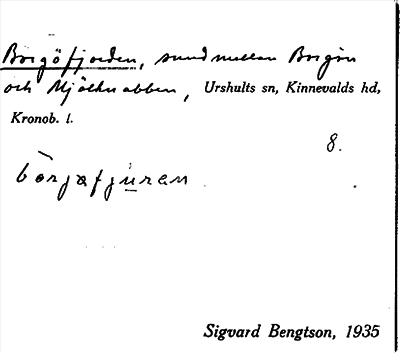 Borgöfjorden, sund mellan Borgön
och Mjölknabben, Urshults sn, Kinnevalds hd,
Kronob. l.
8.
Sigvard Bengtson, 1935